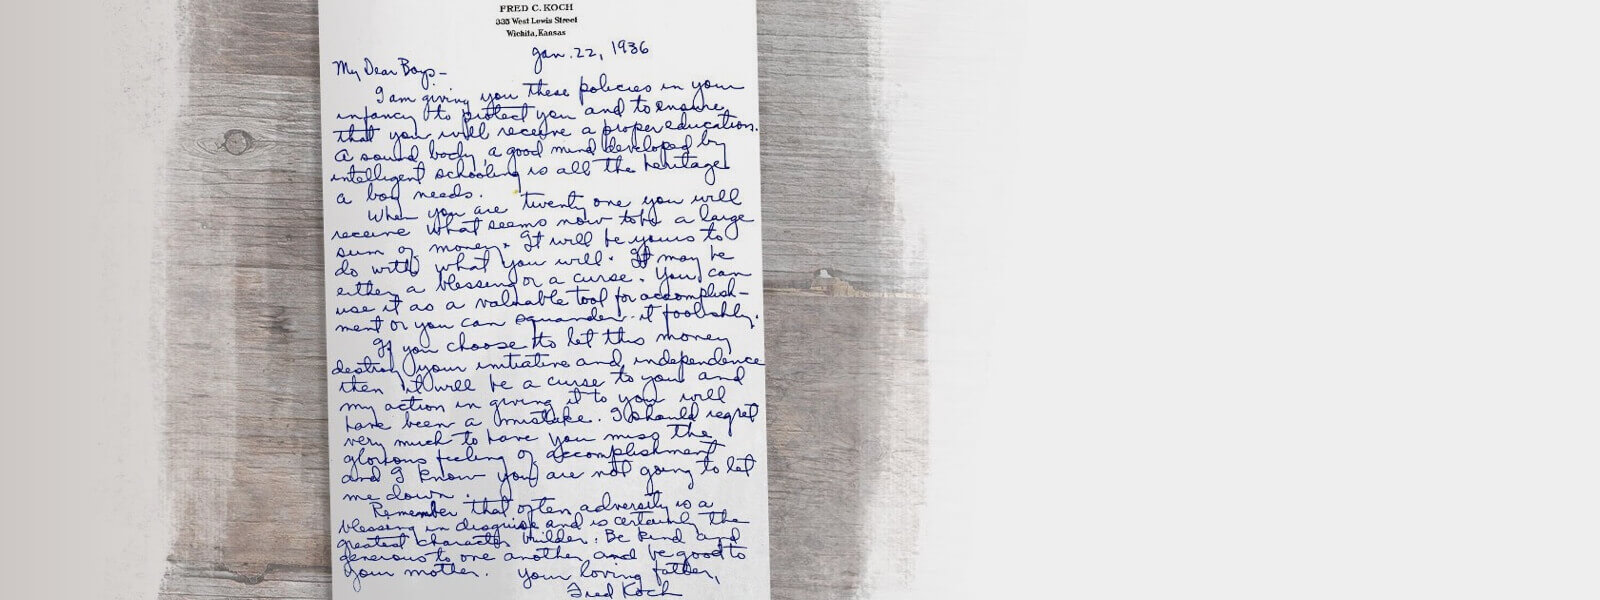 FRED C. KOCH
335 West Lewis Street
Wichita, Kansas
Jan. 22, 1936
My Dear Boys-
I am giving you these policies in your
infancy to protect you and to ensure
that you will receive a proper education.
A sound body, a good mind developed by
intelligent schooling is all the heritage
a boy needs.
When you are twenty one you will
receive what seems now to be a large
sum of money. It will be yours to
do with what you will. It may be
either a blessing or a curse. You can
use it as a valuable tool for accomplish-
ment or you can squander it foolishly.
If you choose to let this money
destroy your initiative and independence
then it will be a curse to you and
my action in giving it to you will
have been a mistake. I should regret
very much to have you miss the
glorious feeling of accomplishment
and I know you are not going to let
me down.
Remember that often adversity is a
blessing in disguise and is certainly the
greatest character builder. Be kind and
generous to one another and be good to
your mother. Your loving father,
Fred Koch